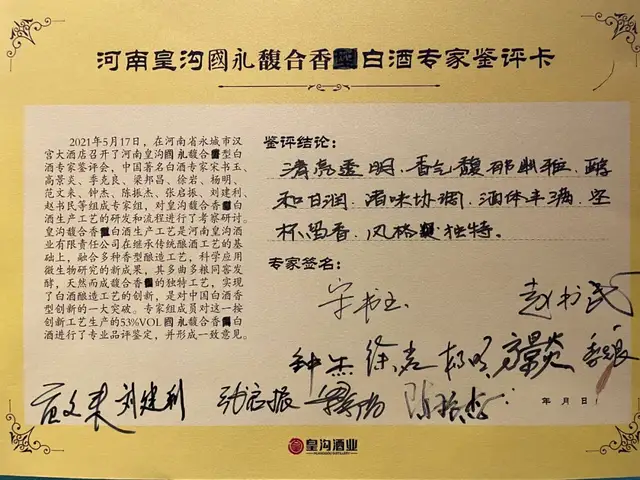 河南皇沟國永馥合香型白酒专家鉴评卡
2021年5月17日，在河南省永城市汉
宫大酒店召开了河南皇沟國永馥合香型白
酒专家鉴评会，中国著名白酒专家宋书玉、
高景炎、季克良、梁邦昌、徐岩、杨明、
范文来、钟杰、陈振杰、张启振、刘建利、
赵书民等组成专家组，对皇沟馥合香白
酒生产工艺的研发和流程进行了考察研讨。
皇沟馥合香白酒生产工艺是河南皇沟酒
业有限责任公司在继承传统酿酒工艺的基
础上，融合多种香型酿造工艺，科学应用
微生物研究的新成果，其多曲多粮同窖发
酵，天然而成馥合香的独特工艺，实现
了白酒酿造工艺的创新，是对中国白酒香
型创新的一大突破。专家组成员对这一按
创新工艺生产的53%VOL國永馥合香白
酒进行了专业品评鉴定，并形成一致意见。
鉴评结论：
清亮透明、香气馥郁幽雅，醇
和甘润、诸味协调、酒体丰满、空
杯留香、风格独特。
专家签名：
宋书玉 赵书民
钟杰 徐岩 杨明 高景炎 季克良
范文来 刘建利 张启振 梁邦昌 陈振杰
年 月 日
皇沟酒业